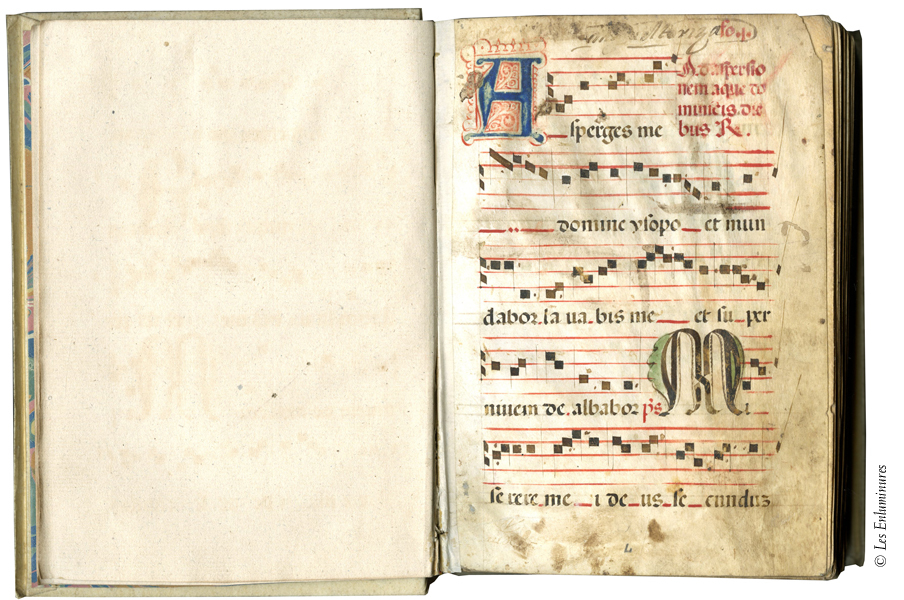 fo. j.
Ad aspersio
nem aque do
minicis die
bus R.
Asperges me
domine ysopo et mun
dabor lauabis me et super
niuem de albabor ps M i
serere me i de us se cundu3
© Les Enluminures